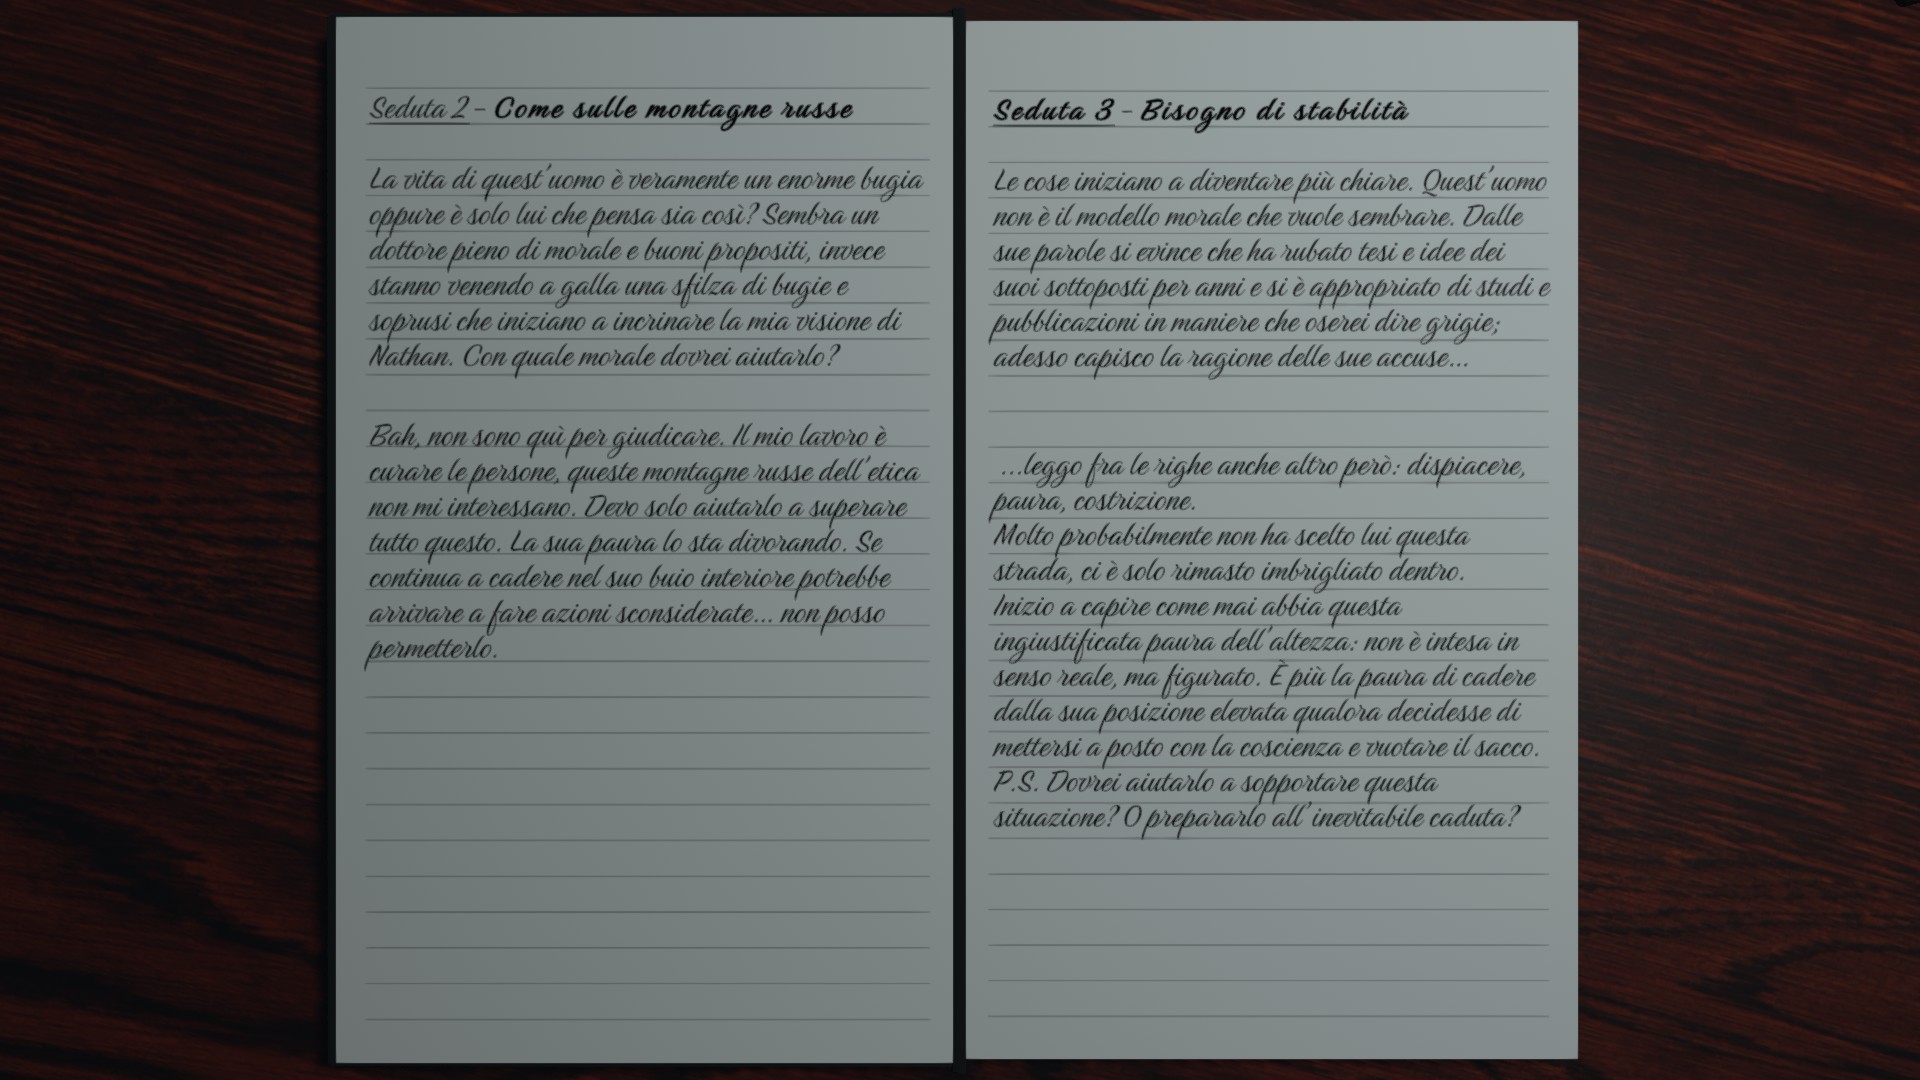 Seduta 2 - Come sulle montagne russe
La vita di quest'uomo è veramente un enorme bugia
oppure è solo lui che pensa sia così? Sembra un
dottore pieno di morale e buoni propositi, invece
stanno venendo a galla una sfilza di bugie e
soprusi che iniziano a incrinare la mia visione di
Nathan. Con quale morale dovrei aiutarlo?
Bah, non sono quì per giudicare. Il mio lavoro è
curare le persone, queste montagne russe dell'etica
non mi interessano. Devo solo aiutarlo a superare
tutto questo. La sua paura lo sta divorando. Se
continua a cadere nel suo buio interiore potrebbe
arrivare a fare azioni sconsiderate... non posso
permetterlo.
Seduta 3 - Bisogno di stabilità
Le cose iniziano a diventare più chiare. Quest'uomo
non è il modello morale che vuole sembrare. Dalle
sue parole si evince che ha rubato tesi e idee dei
suoi sottoposti per anni e si è appropriato di studi e
pubblicazioni in maniere che oserei dire grigie;
adesso capisco la ragione delle sue accuse...
...leggo fra le righe anche altro però: dispiacere,
paura, costrizione.
Molto probabilmente non ha scelto lui questa
strada, ci è solo rimasto imbrigliato dentro.
Inizio a capire come mai abbia questa
ingiustificata paura dell'altezza: non è intesa in
senso reale, ma figurato. È più la paura di cadere
dalla sua posizione elevata qualora decidesse di
mettersi a posto con la coscienza e vuotare il sacco.
P.S. Dovrei aiutarlo a sopportare questa
situazione? O prepararlo all'inevitabile caduta?